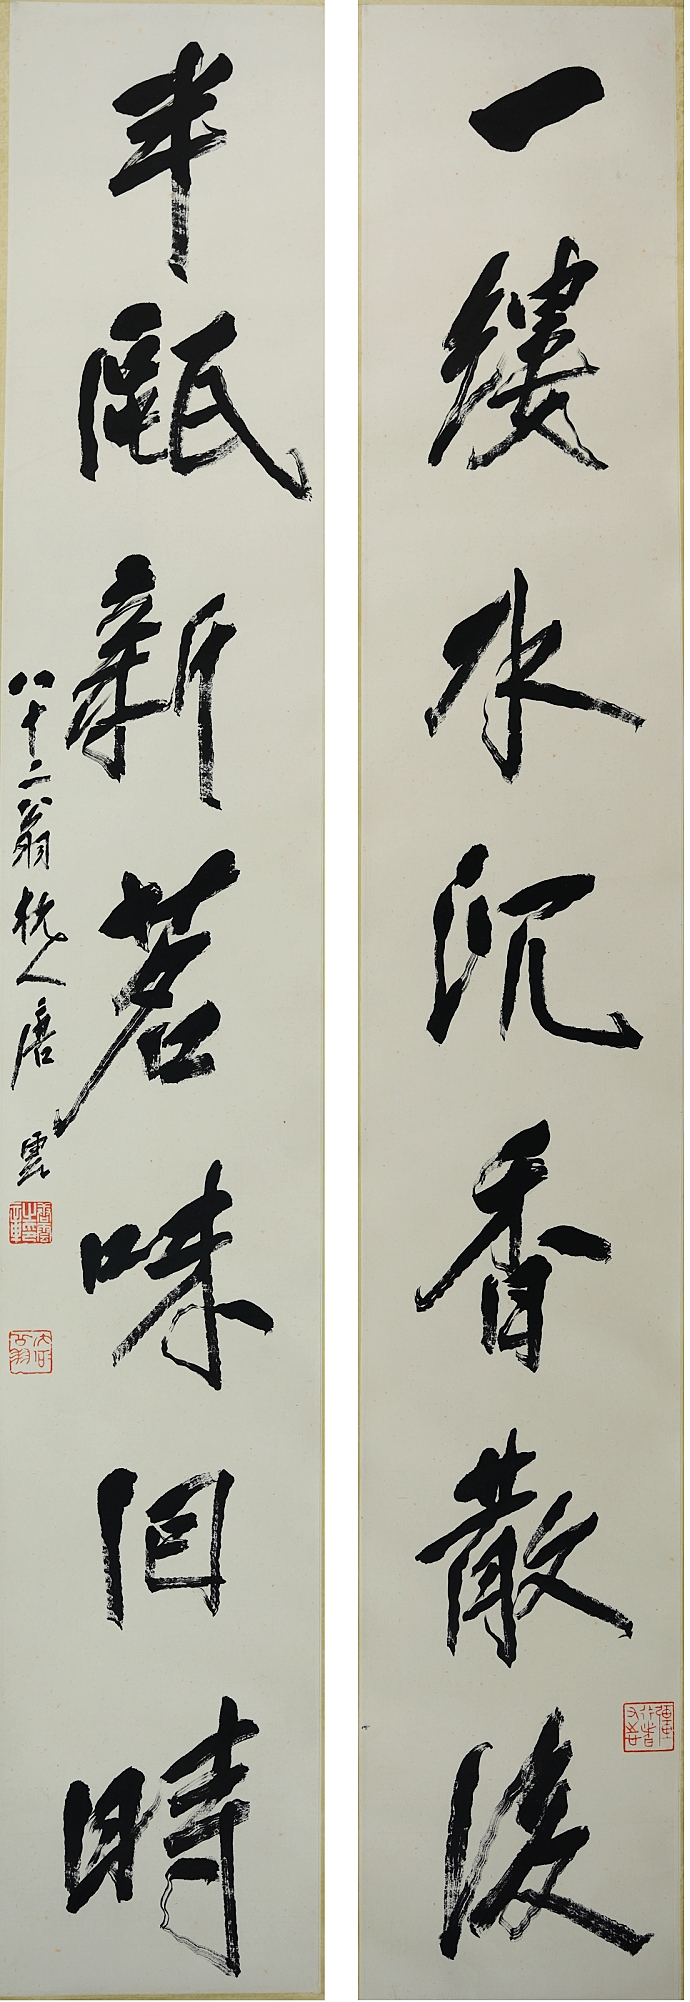 一縷水沉香散後
半甌新茗味回時
八十二翁杭人唐雲